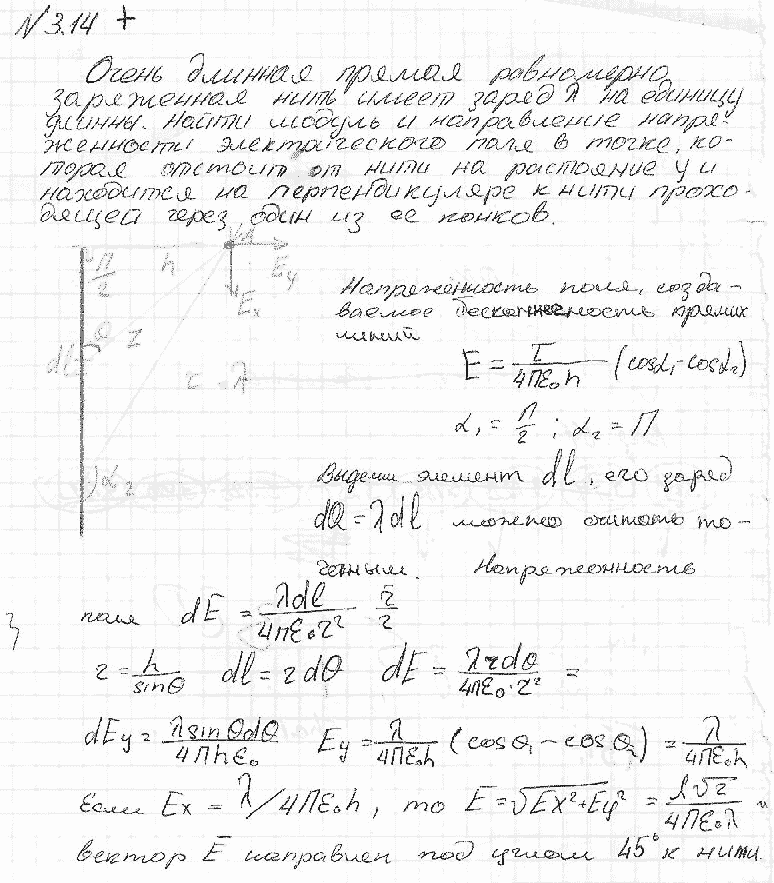 N 3.14 +
Очень длинная прямая равномерно
заряженная нить имеет заряд λ на единицу
длинны. Найти модуль и направление напря-
женности электрического поля в точке, ко-
торая отстоит от нити на растояние y и
находится на перпендикуляре к нити прохо-
дящей через один из ее концов.
π/2 h Ey
Ex
θ r
dl
τ = λ
α₂
Напряженность поля, созда-
ваемое
линий
E = τ/4πε₀h (cosα₁ - cosα₂)
α₁ = π/2 ; α₂ = π
Выделим элемент dl, его заряд
dQ = λdl можно считать то-
чечным. Напряжонность
поля dE = λdl/4πε₀r² r̄/r
r = h/sinθ dl = r dθ dE = λrdθ/4πε₀·r² =
dEy = λsinθdθ/4πhε₀ Ey = λ/4πε₀h (cosθ₁ - cosθ₂) = λ/4πε₀h
Если Ex = λ/4πε₀h, то E = √Ex²+Ey² = λ√2/4πε₀λ и
вектор E̅ направлен под углом 45° к нити.